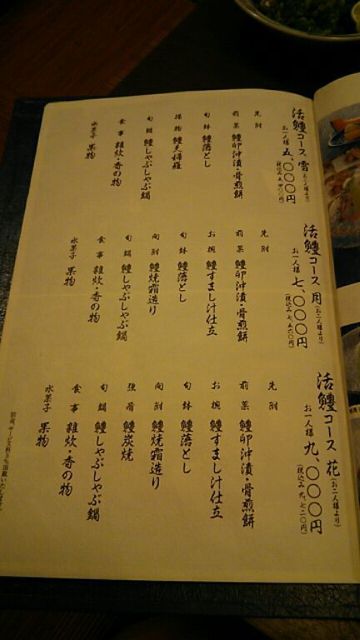 活鱧コース 雪(お二人様より)
お一人様 五、〇〇〇円
(税込み 五、四〇〇円)
先附
前菜 鱧卵沖漬・骨煎餅
旬鉢 鱧落とし
揚物 鱧天婦羅
旬鍋 鱧しゃぶしゃぶ鍋
食事 雑炊・香の物
水菓子 果物
活鱧コース 月(お二人様より)
お一人様 七、〇〇〇円
(税込み 七、五六〇円)
先附
前菜 鱧卵沖漬・骨煎餅
お椀 鱧すまし汁仕立
旬鉢 鱧落とし
向附 鱧焼霜造り
旬鍋 鱧しゃぶしゃぶ鍋
食事 雑炊・香の物
水菓子 果物
活鱧コース 花(お二人様より)
お一人様 九、〇〇〇円
(税込み 九、七二〇円)
先附
前菜 鱧卵沖漬・骨煎餅
お椀 鱧すまし汁仕立
旬鉢 鱧落とし
向附 鱧焼霜造り
強肴 鱧炭焼
旬鍋 鱧しゃぶしゃぶ鍋
食事 雑炊・香の物
水菓子 果物
別途、サービス料を頂戴いたします。